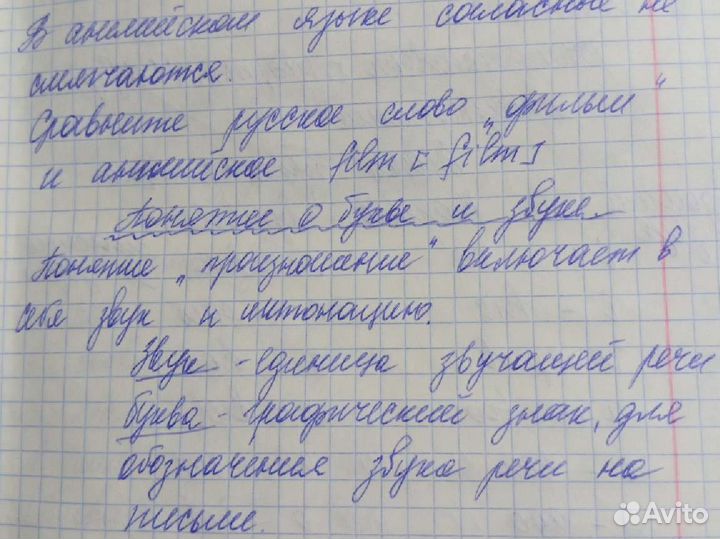 В английском языке согласные не
смягчаются.
Сравните русское слово „фильм“
и английское film [film]
Понятие о букве и звуке
Понятие „произношение“ включает в
себя звук и интонацию.
Звук - единица звучащей речи
буква - графический знак, для
обозначения звука речи на
письме.
Avito